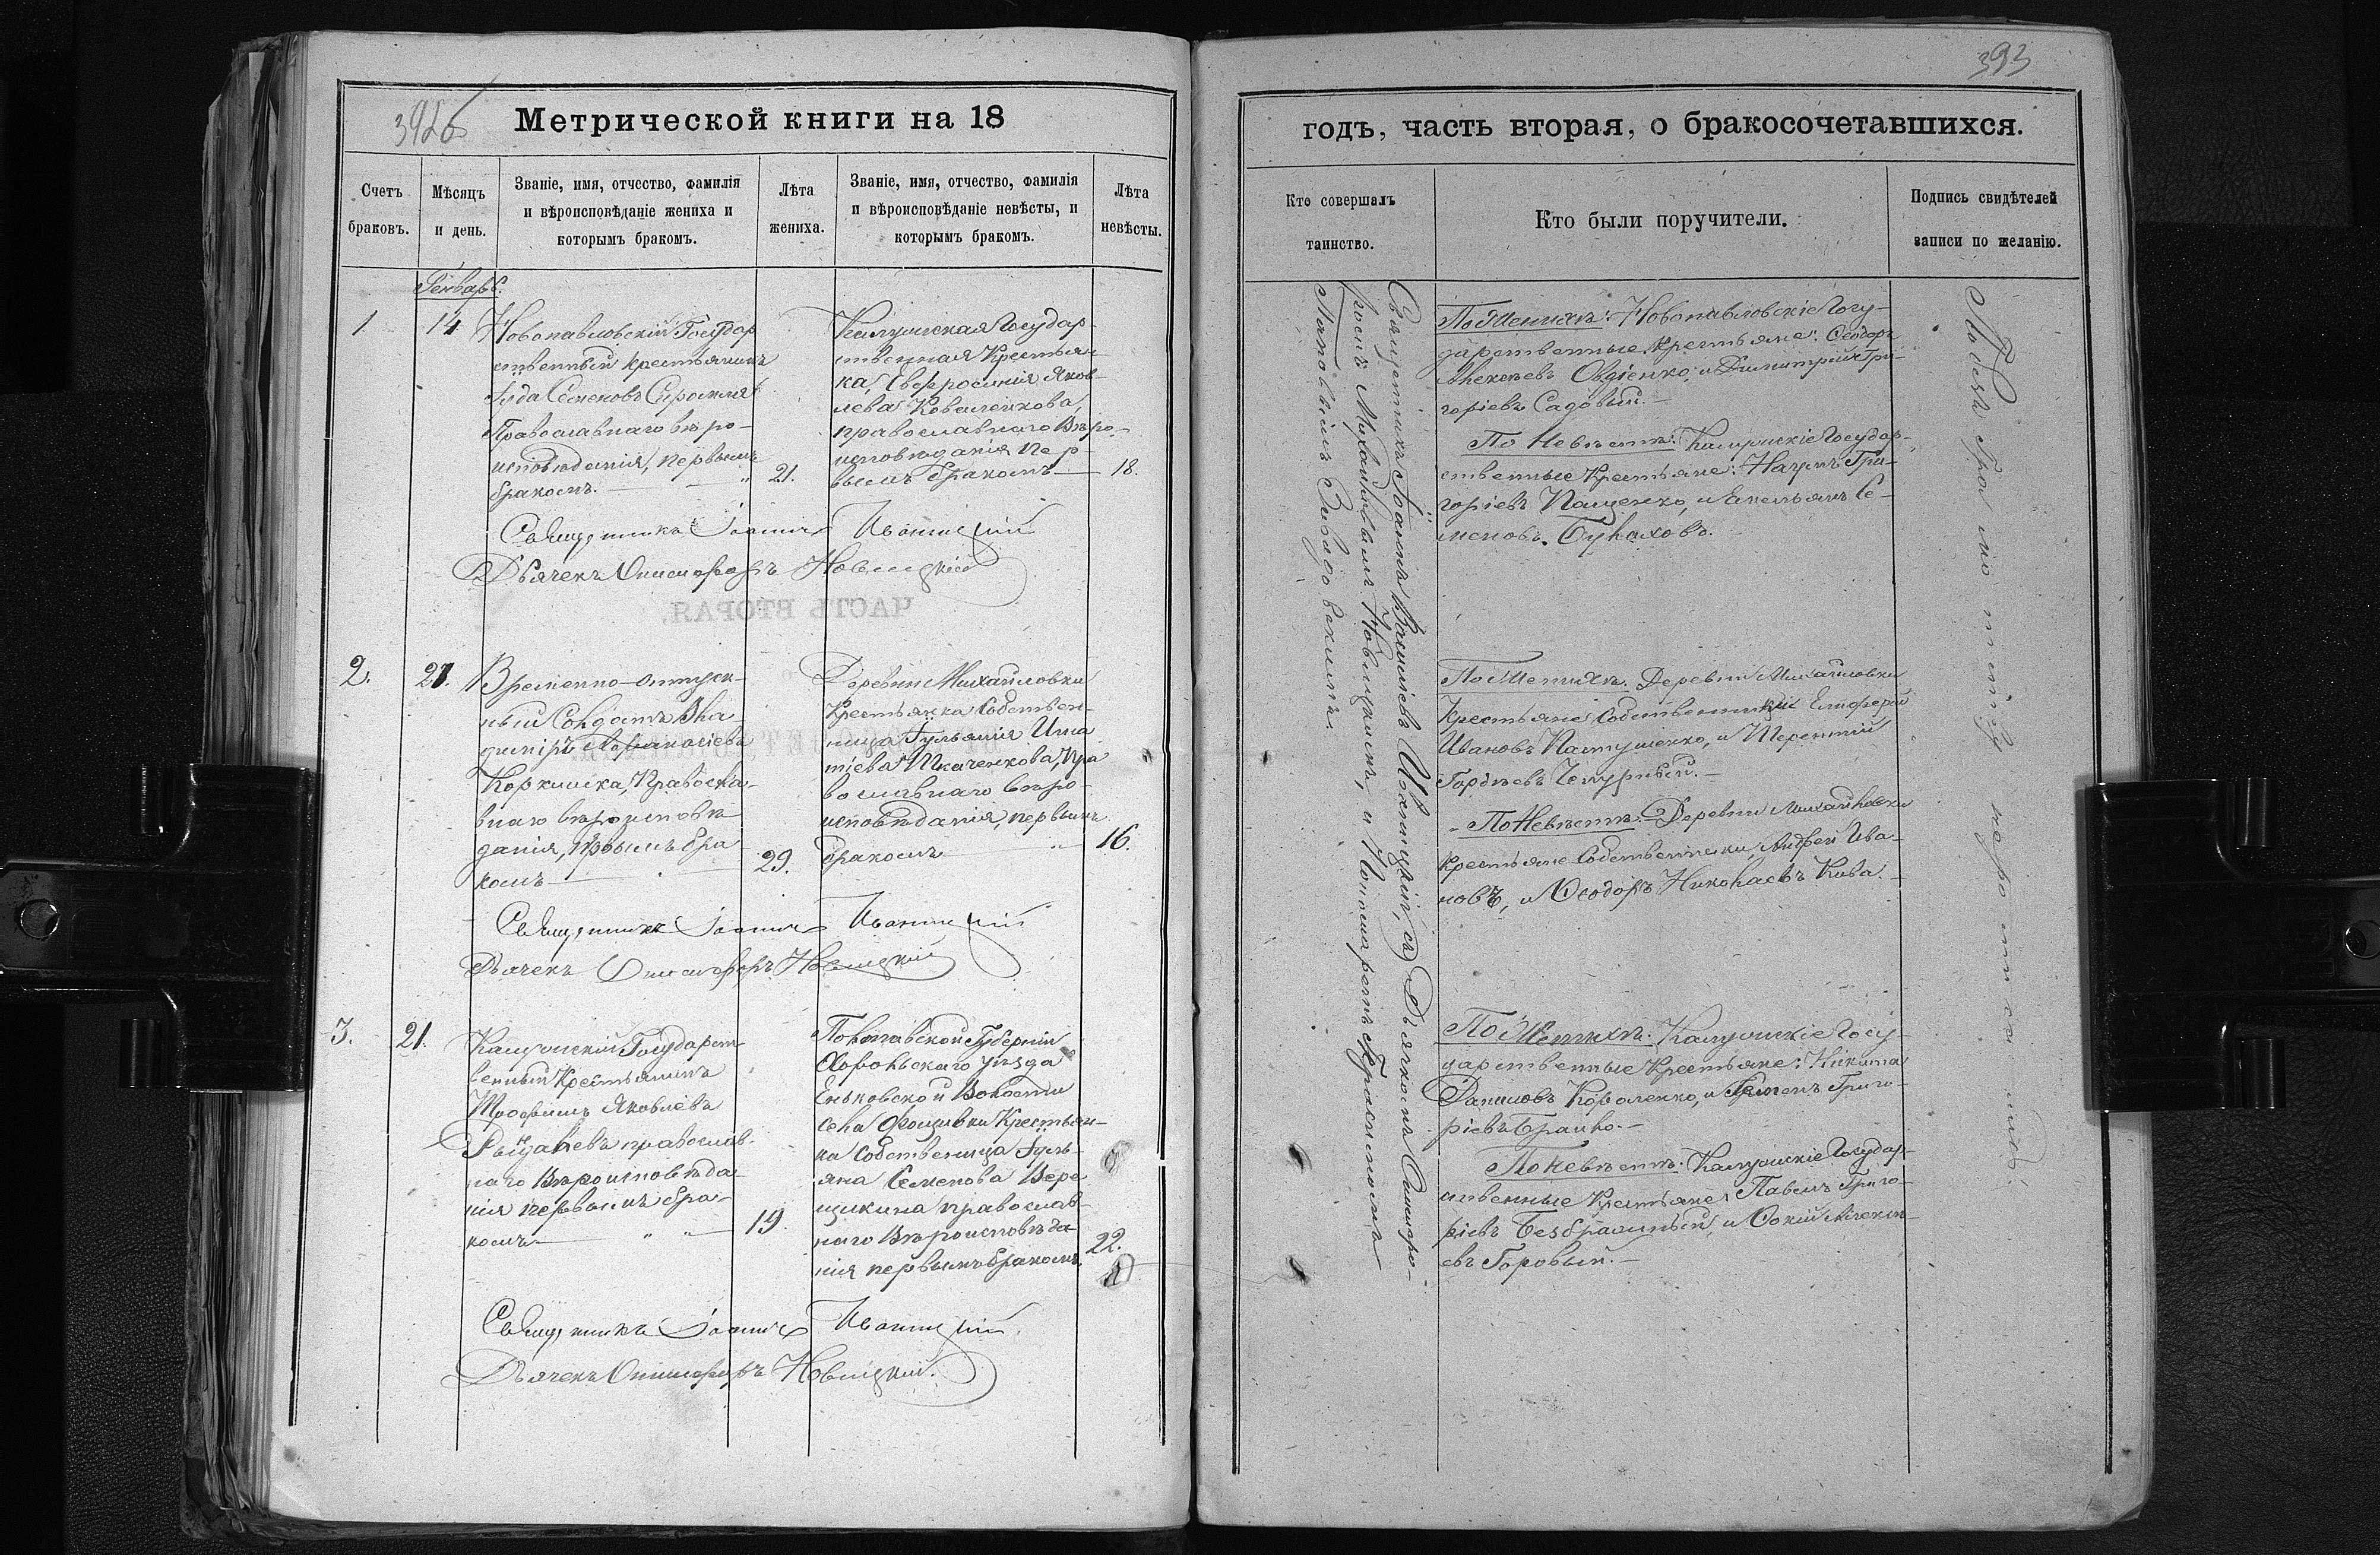 392б
Метрической книги на 18
Счетъ
браковъ.
Мѣсяцъ
и день.
Званіе, имя, отчество, фамилія
и вѣроисповѣданіе жениха и
которымъ бракомъ.
Лѣта
жениха.
Званіе, имя, отчество, фамилія
и вѣроисповѣданіе невѣсты, и
которымъ бракомъ.
Лѣта
невѣсты.
Генварь.
1
14
Новопавловскій Государ
ственный Крестьянинъ
Семеновъ
Православнаго вѣро-
исповѣданія, первымъ
бракомъ.
21.
Государ-
ственная Крестьян-
ка, Евфросинія Яков-
лева Коваленкова,
православнаго Вѣро-
исповѣданія пер-
вымъ бракомъ
18.
Священникъ Іоаннъ Иваницкій
Дьячекъ Онисифоръ Новицкій
2.
21.
Временно-отпуск-
ный Солдатъ Вла-
димиръ Афанасіевъ
Православ-
наго вѣроисповѣ-
данія, первымъ бра-
комъ
29.
Деревни Михайловки
Крестьянка Собствен-
ница Гульянія Игна
тіева Ткаченкова, Пра
вославнаго вѣро-
исповѣданія, первымъ
бракомъ
16.
Священникъ Іоаннъ Иваницкій
Дьячекъ Онисифоръ Новицкій
3.
21.
Государст-
венный Крестьянинъ
Трофимъ Яковлевъ
православ-
наго Вѣроисповѣда-
нія первымъ бра-
комъ
19.
Полтавской Губерніи
Хорольскаго уѣзда
Еньковской Волости
села Крестьян-
ка Собственница Гуль-
яна Семенова Вере
щикина православ-
наго Вѣроисповѣда
нія первымъ бракомъ.
22.
Священникъ Іоаннъ Иваницкій
Дьячекъ Онисифоръ Новицкій.
393
годъ, часть вторая, о бракосочетавшихся.
Кто совершалъ
таинство.
Кто были поручители.
Подпись свидѣтелей
записи по желанію.
Священникъ Іоаннъ Васильевъ Иваницкій, съ Дьячкомъ Онисифо-
ромъ Михайловымъ Новицкимъ, и Пономаремъ
По Женихѣ: Новопавловскіе Госу-
дарственные Крестьяне: Ѳеодоръ
Алексѣевъ Овдіенко, и Димитрій Гри-
горіевъ Садовый.
По Невѣстѣ: Государ-
ственные Крестьяне: Наумъ Гри-
горіевъ Пащенко, и Емельянъ Се-
меновъ.
По Женихѣ. Деревни Михайловки
Крестьяне Собственники Елиферій
Ивановъ и Терентій
Гордѣевъ Чепурный.
По Невѣстѣ. Деревни Михайловки
Крестьяне Собственники, Андрей Ива-
новъ, и Ѳеодоръ Николаевъ Кива.
По Женихѣ: Госу
дарственные Крестьяне: Никита
Даниловъ Коваленко, и Григо-
ріевъ
По Невѣстѣ: Государ-
ственные Крестьяне: Павелъ Григо-
ріевъ и Алексѣ-
евъ Горовый.